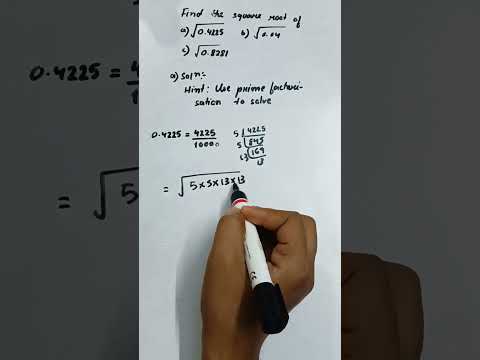 Find the square root of
a) √0.4225 b) √0.04
c) √0.8281
a) Solⁿ:-
Hint: Use prime factori-
sation to solve
0.4225 = 4225/10000
5 | 4225
5 | 845
13 | 169
13
= √5×5×13×13
0.4225 =
= √5